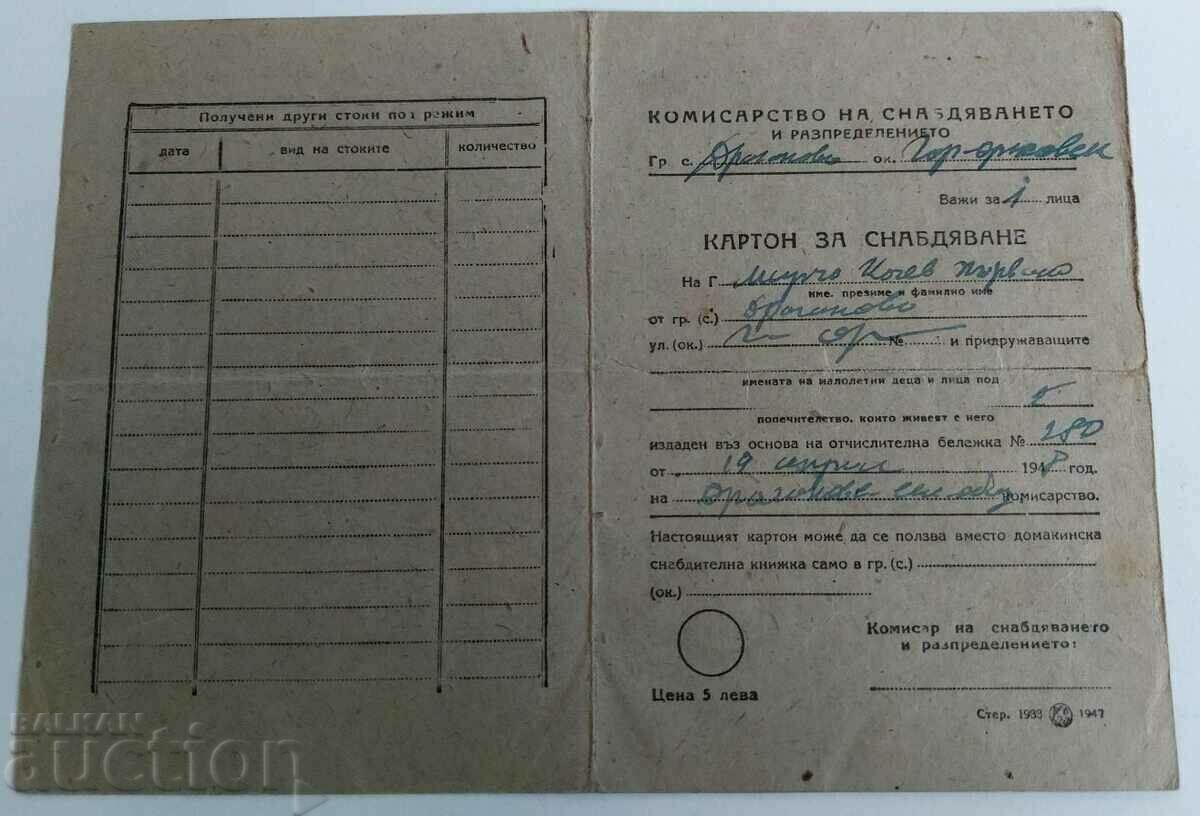 Получени други стоки по режим
дата вид на стоките количество
КОМИСАРСТВО НА СНАБДЯВАНЕТО
И РАЗПРЕДЕЛЕНИЕТО
Гр. с. Драганово ок. Гор-Оряховск
Важи за 1 лица
КАРТОН ЗА СНАБДЯВАНЕ
На Г.
име, презиме и фамилно име
от гр. (с.) Драганово
ул. (ок.) № и придружаващите
имената на малолетни деца и лица под
попечителство, които живеят с него
издаден въз основа на отчислителна бележка № 280
от 19 април 1948 год.
на Драганово комисарство.
Настоящият картон може да се ползва вместо домакинска
снабдителна книжка само в гр. (с.)
(ок.)
Комисар на снабдяването
и разпределението:
Цена 5 лева
Стер. 1933 1947
BALKAN
auction